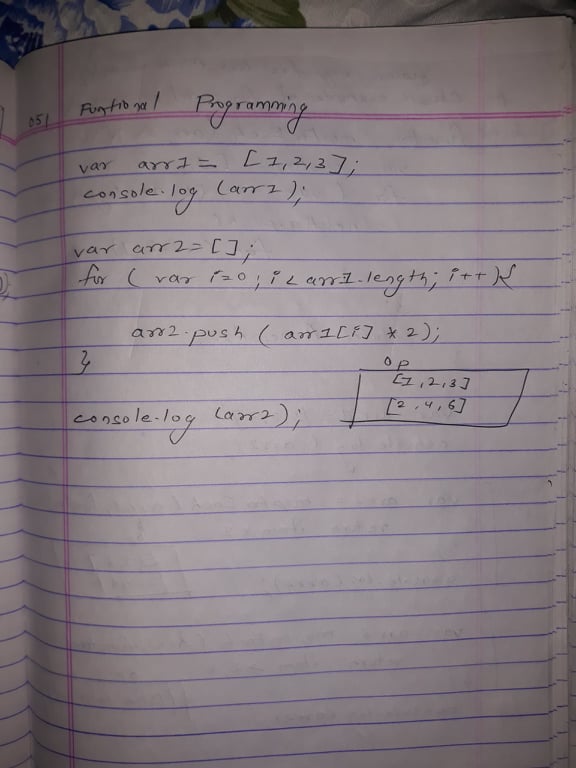 051 Funtional Programming
var arr1 = [1,2,3];
console.log (arr1);
var arr2=[];
for ( var i=0; i< arr1.length; i++ ){
arr2.push ( arr1[i] * 2);
}
OP
[1,2,3]
[2,4,6]
console.log (arr2);